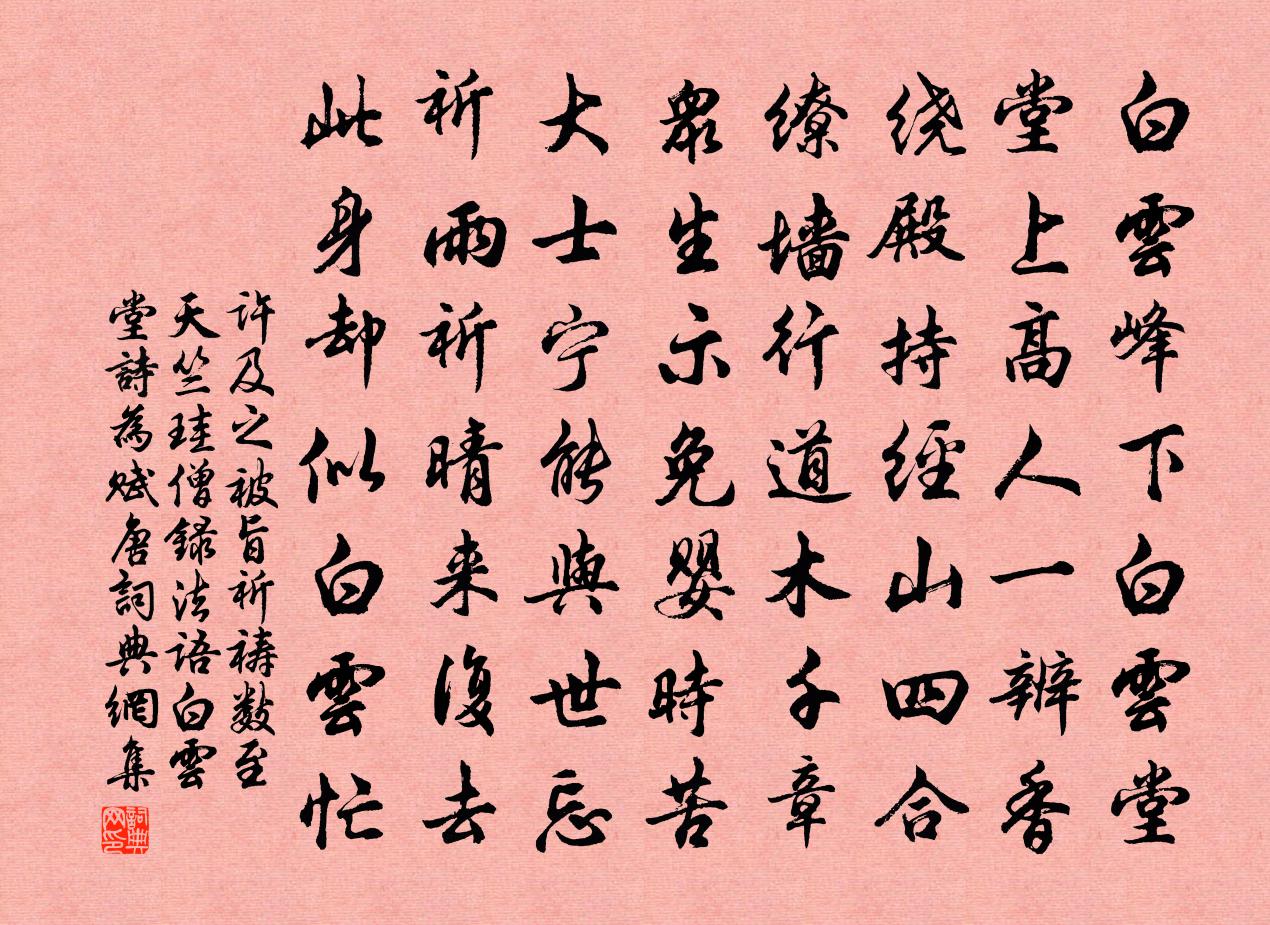 白雲峰下白雲堂
堂上高人一辦香
绕殿持經山四合
缭墙行道木千章
衆生示免嬰時苦
大士宁能與世忘
祈雨祈晴来復去
此身却似白雲忙
许及之被旨祈祷数至
天竺珪僧録法语白雲
堂詩為赋唐詞典網集
詞典网印